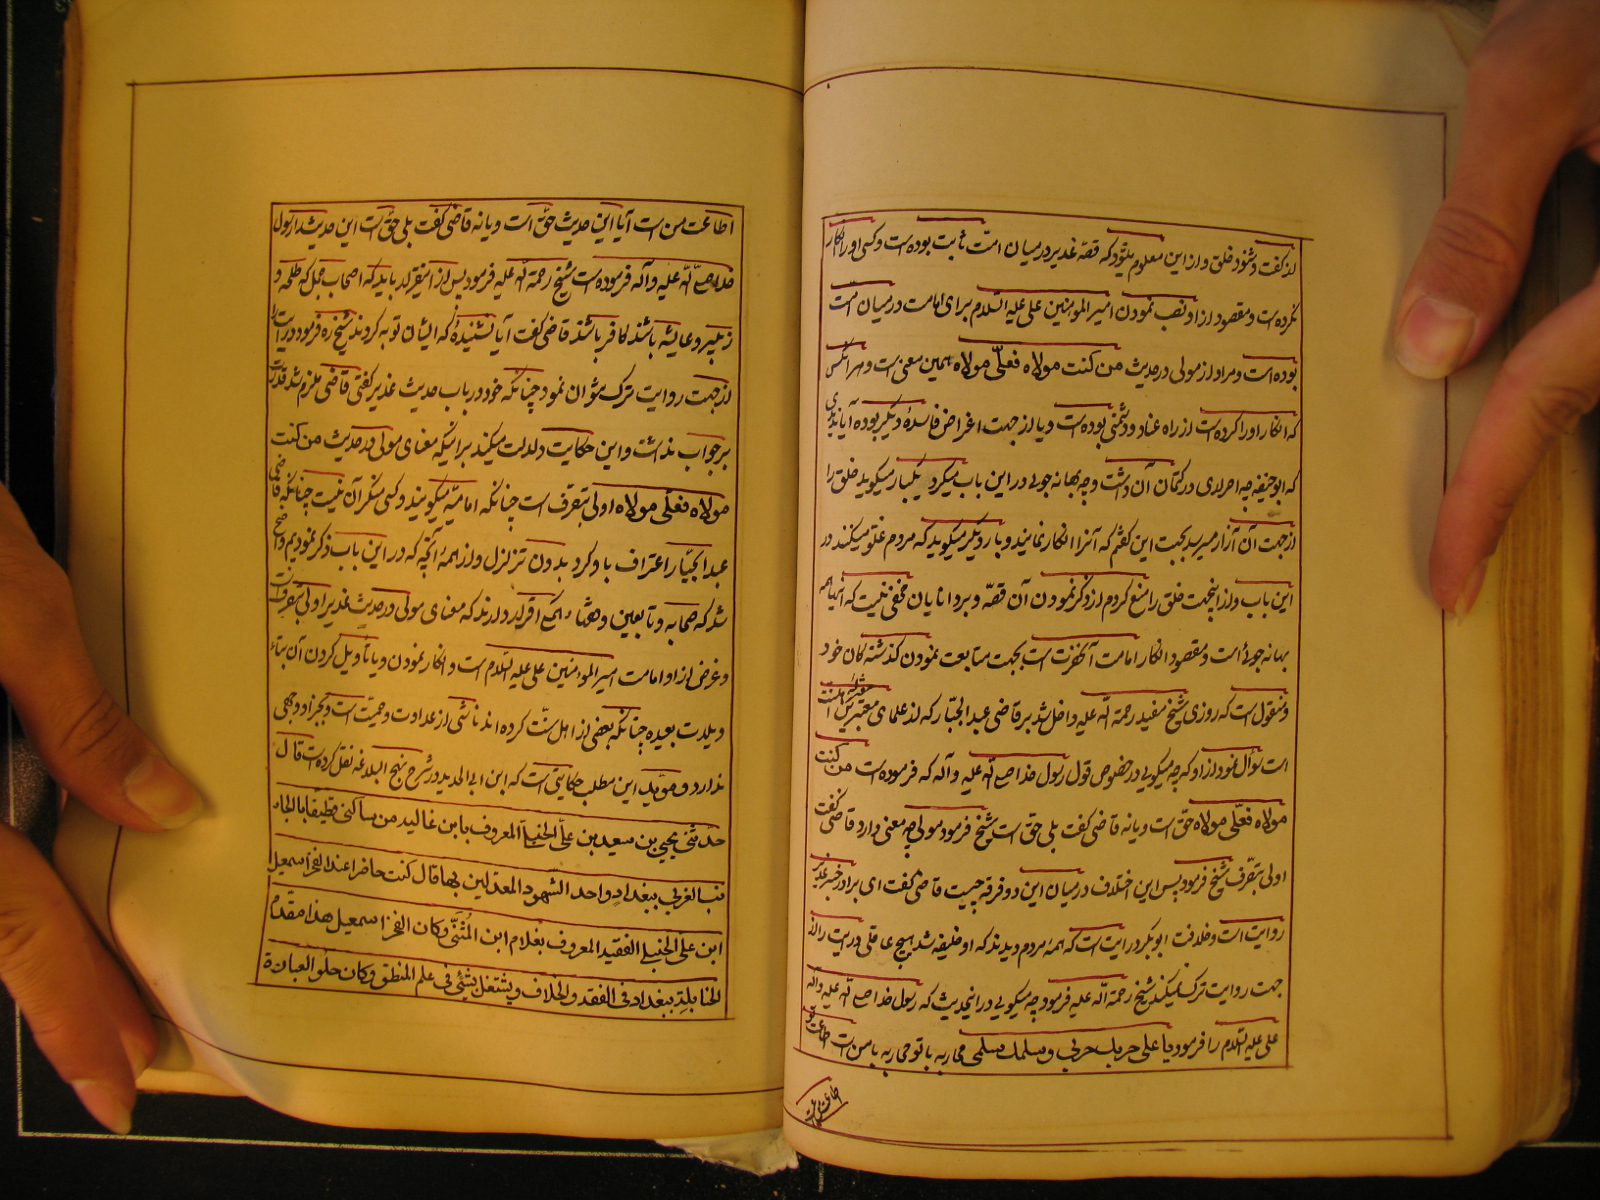 از گفت و شنود خلق و از این معلوم میشود که قصه غدیر در میان امت ثابت بوده است و کسی او را انکار
نکرده است و مقصود از او نصب نمودن امیر المومنین علی علیه السلام برای امامت در میان امت
بوده است و مراد از مولی در حدیث من کنت مولاه فعلی مولاه همین معنی است و هر آنکس
که انکار او را کرده است از راه عناد و دشمنی بوده است و یا از جهت اغراض فاسده دیگر بوده آیا ندیدی
که ابو حنیفه چه اصراری در کتمان آن داشت و چه بهانه جویی در این باب میکرد یکبار میگوید خلق را
از جهت آن آزار میرسد بجهت این گفتم که آنرا انکار نمایند و بار دیگر میگوید که مردم غلو میکنند در
این باب و از اینجهت خلق را منع کردم از ذکر نمودن آن قصه و بر دانایان مخفی نیست که اینها همه
بهانه جوئی است و مقصود انکار امامت آنحضرت است بجهت متابعت نمودن گذشته گان خود
و منقول است که روزی شیخ مفید رحمة الله علیه داخل شد بر قاضی عبد الجبار که از علمای معتبرین اهل سنت
است سؤال نمود از او که چه میگویی در خصوص قول رسول خدا صلی الله علیه و آله که فرموده است من کنت
مولاه فعلی مولاه حق است و یا نه قاضی گفت بلی حق است شیخ فرمود مولی چه معنی دارد قاضی گفت
اولی بتصرف شیخ فرمود پس این اختلاف در میان این دو فرقه چیست قاضی گفت ای برادر خبر غدیر
روایت است و خلافت ابوبکر درایت است که همه مردم دیدند که او خلیفه شد هیچ عاقلی درایت را از
جهت روایت ترک نمیکند شیخ رحمة الله علیه فرمود چه میگویی در اینحدیث که رسول خدا صلی الله علیه و آله
علی علیه السلام را فرمود یا علی حربک حربی و سلمک سلمی محاربه با تو محاربه با من است اطاعت تو
اطاعت من است آیا این حدیث حق است و یا نه قاضی گفت بلی حق است این حدیث از رسول
خدا صلی الله علیه و آله فرموده است شیخ رحمة الله علیه فرمود پس از اینقرار باید که اصحاب جمل که طلحه و
زبیر و عایشه باشند کافر باشند قاضی گفت آیا نشنیدهٔ که ایشان توبه کردند شیخ ره فرمود درایت را
از جهت روایت ترک نتوان نمود چنانکه خود در باب حدیث غدیر گفتی قاضی ملزم شد قدرت
بر جواب نداشت و این حکایت دلالت میکند بر اینکه معنای مولی در حدیث من کنت
مولاه فعلی مولاه اولی بتصرف است چنانکه امامیه میگویند و کسی منکر آن نیست چنانکه قاضی
عبد الجبار اعتراف باو کرد بدون تزلزل و از همهٔ آنچه که در این باب ذکر نمودیم واضح
شد که صحابه و تابعین اقرار دارند که معنای مولی در حدیث غدیر اولی بتصرف است
و غرض از او امامت امیر المومنین علی علیه السلام است و انکار نمودن و یا تاویل کردن آن
بعیده چنانکه بعضی از اهل سنت کرده اند ناشی از عداوت و حمیت است و
ندارد و مؤید این مطلب حکایتی است که ابن ابی الحدید در شرح نهج البلاغه نقل کرده است قال
حدثنی یحیی بن سعید بن علی الحنبلی المعروف بابن عالیه من ساکنی قطیفنا بالجانب
الغربی ببغداد و احد الشهود المعدلین بها قال کنت حاضرا عند الفخر اسمعیل
ابن علی الحنبلی الفقیه المعروف بغلام ابن المثنی و کان الفخر اسمعیل هذا مقدم
الحنابلة ببغداد فی الفقه و الخلاف و یشتغل بشئ فی علم المنطق و کان حلو العبارة